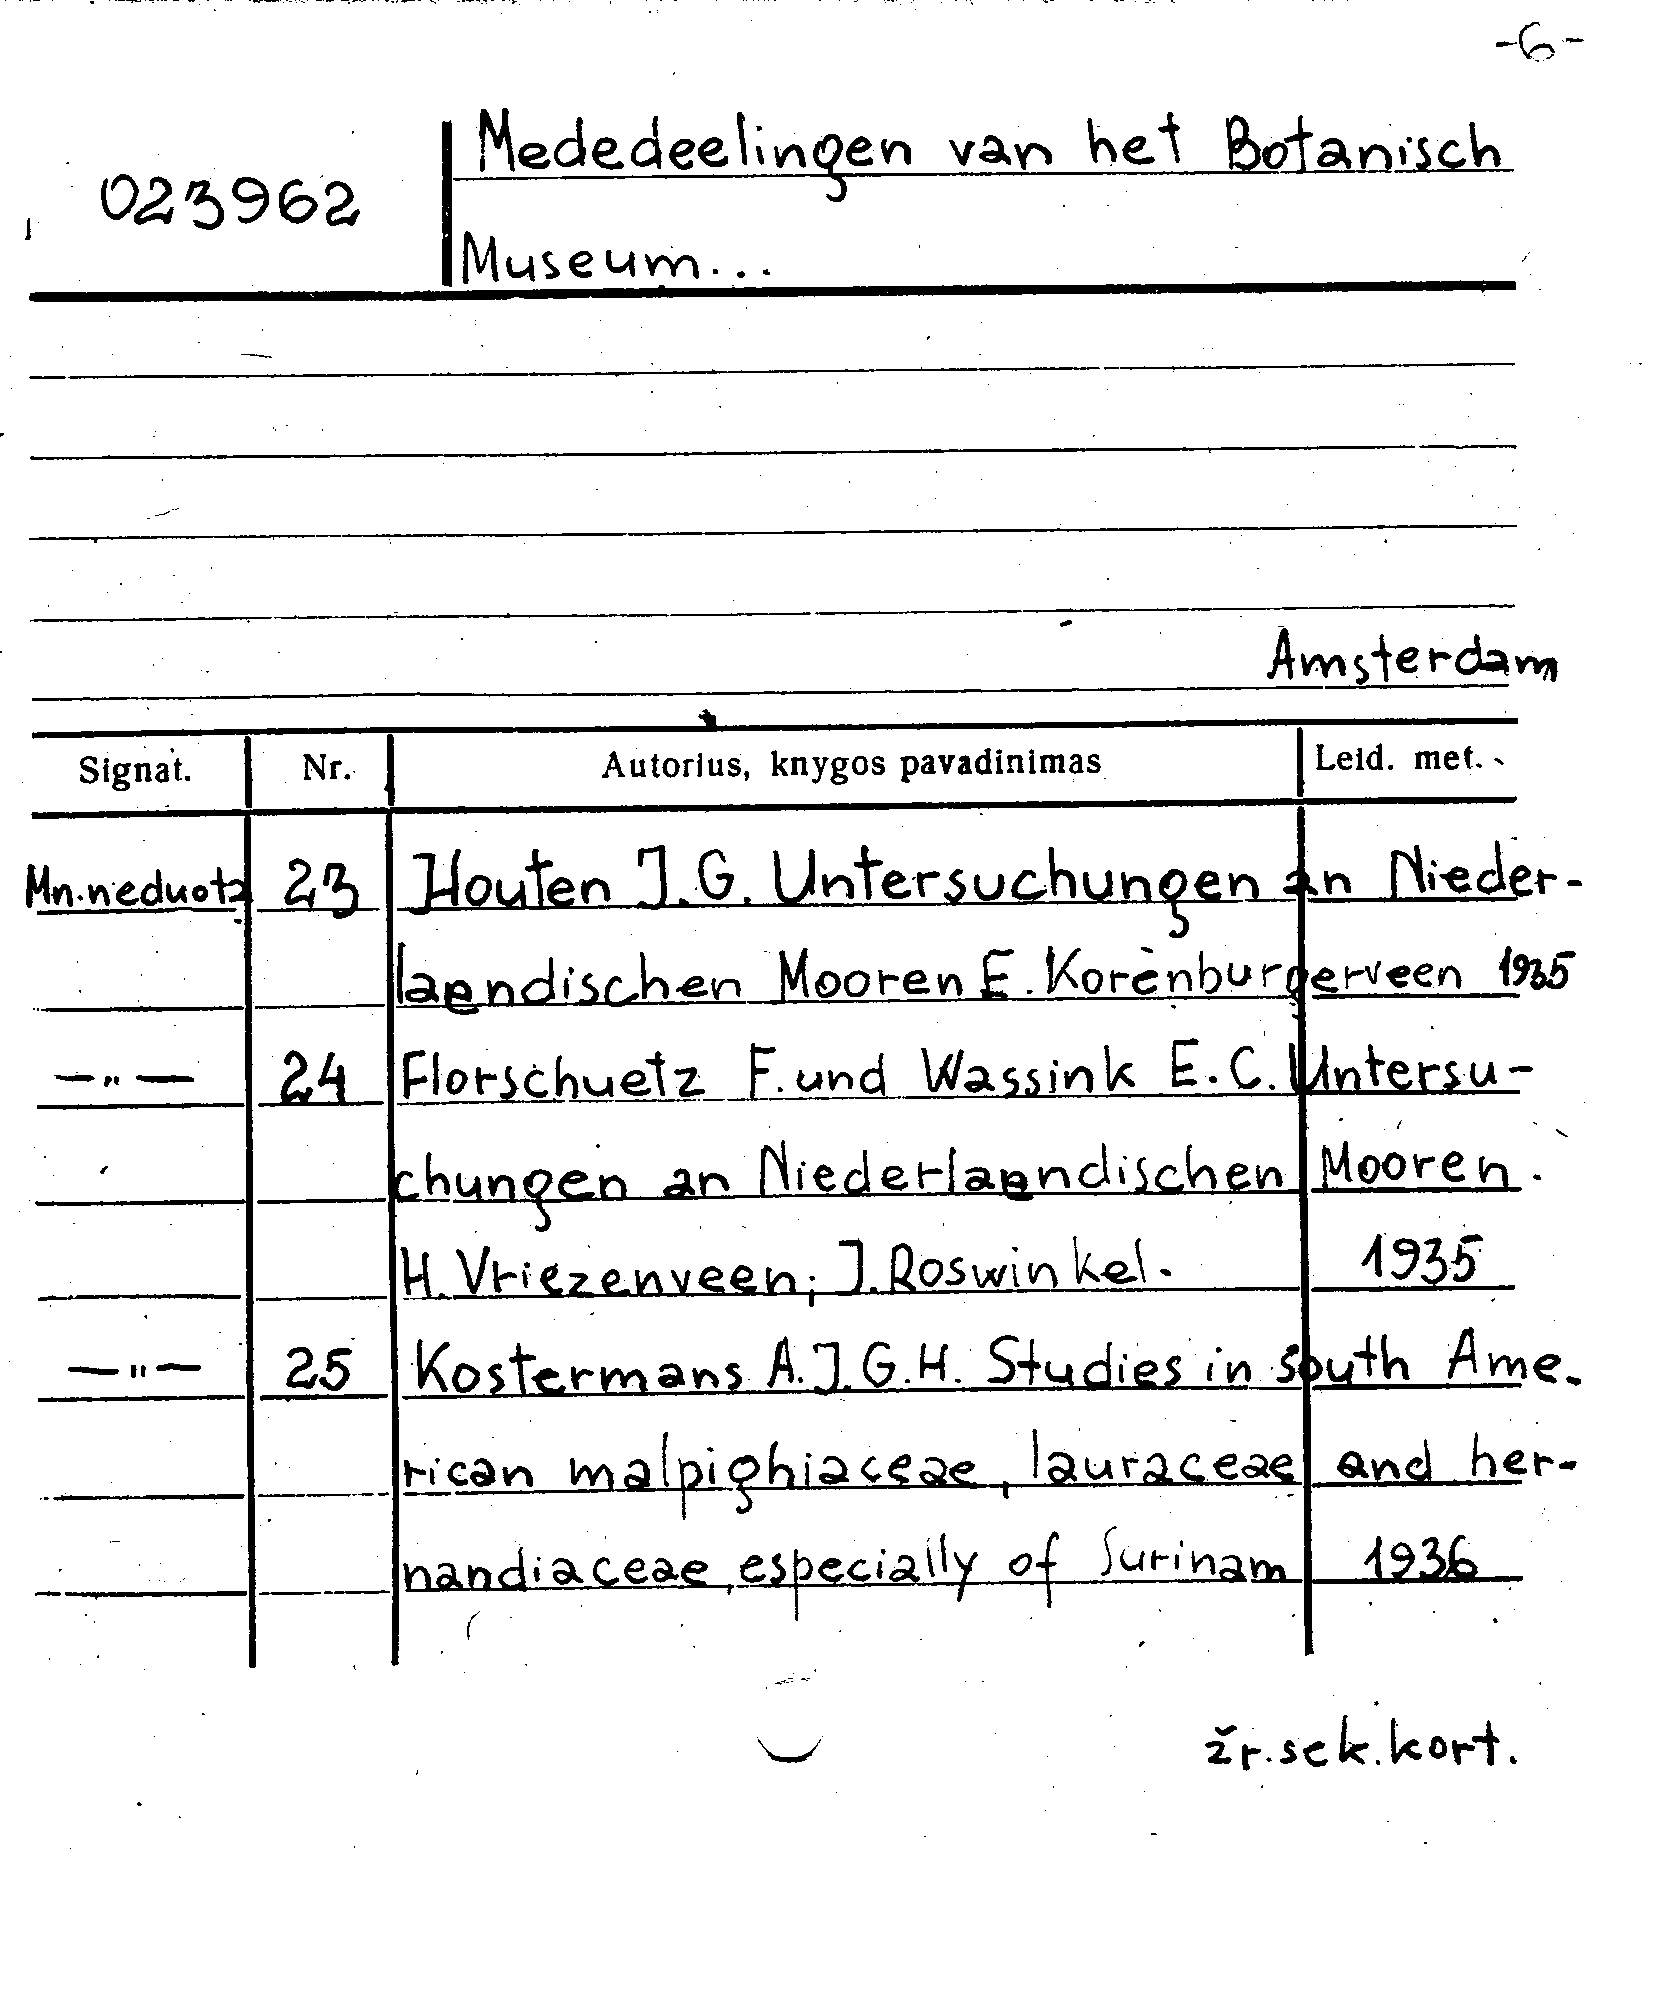 -6-
023962 Mededeelingen van het Botanisch
Museum...
Amsterdam
Signat. Nr. Autorius, knygos pavadinimas Leid. met.
Mn.neduota 23 Houten J.G. Untersuchungen an Nieder-
laendischen Mooren E. Korenburgerveen 1935
—„— 24 Florschuetz F. und Wassink E.C. Untersu-
chungen an Niederlaendischen Mooren.
H. Vriezenveen; J. Roswinkel. 1935
—"— 25 Kostermans A.J.G.H. Studies in south Ame-
rican malpighiaceae, lauraceae and her-
nandiaceae, especially of Surinam 1936
žr.sek.kort.